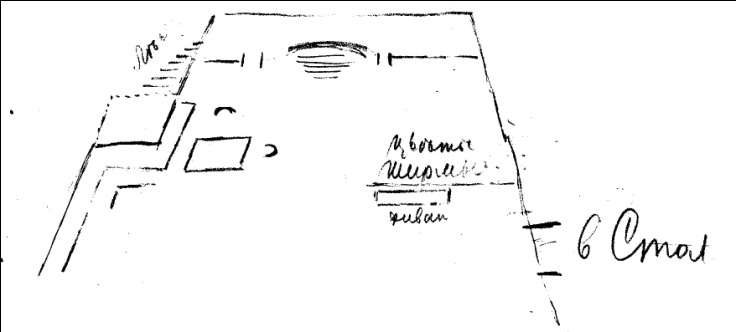 цветы
ширмы
диван
в Стол